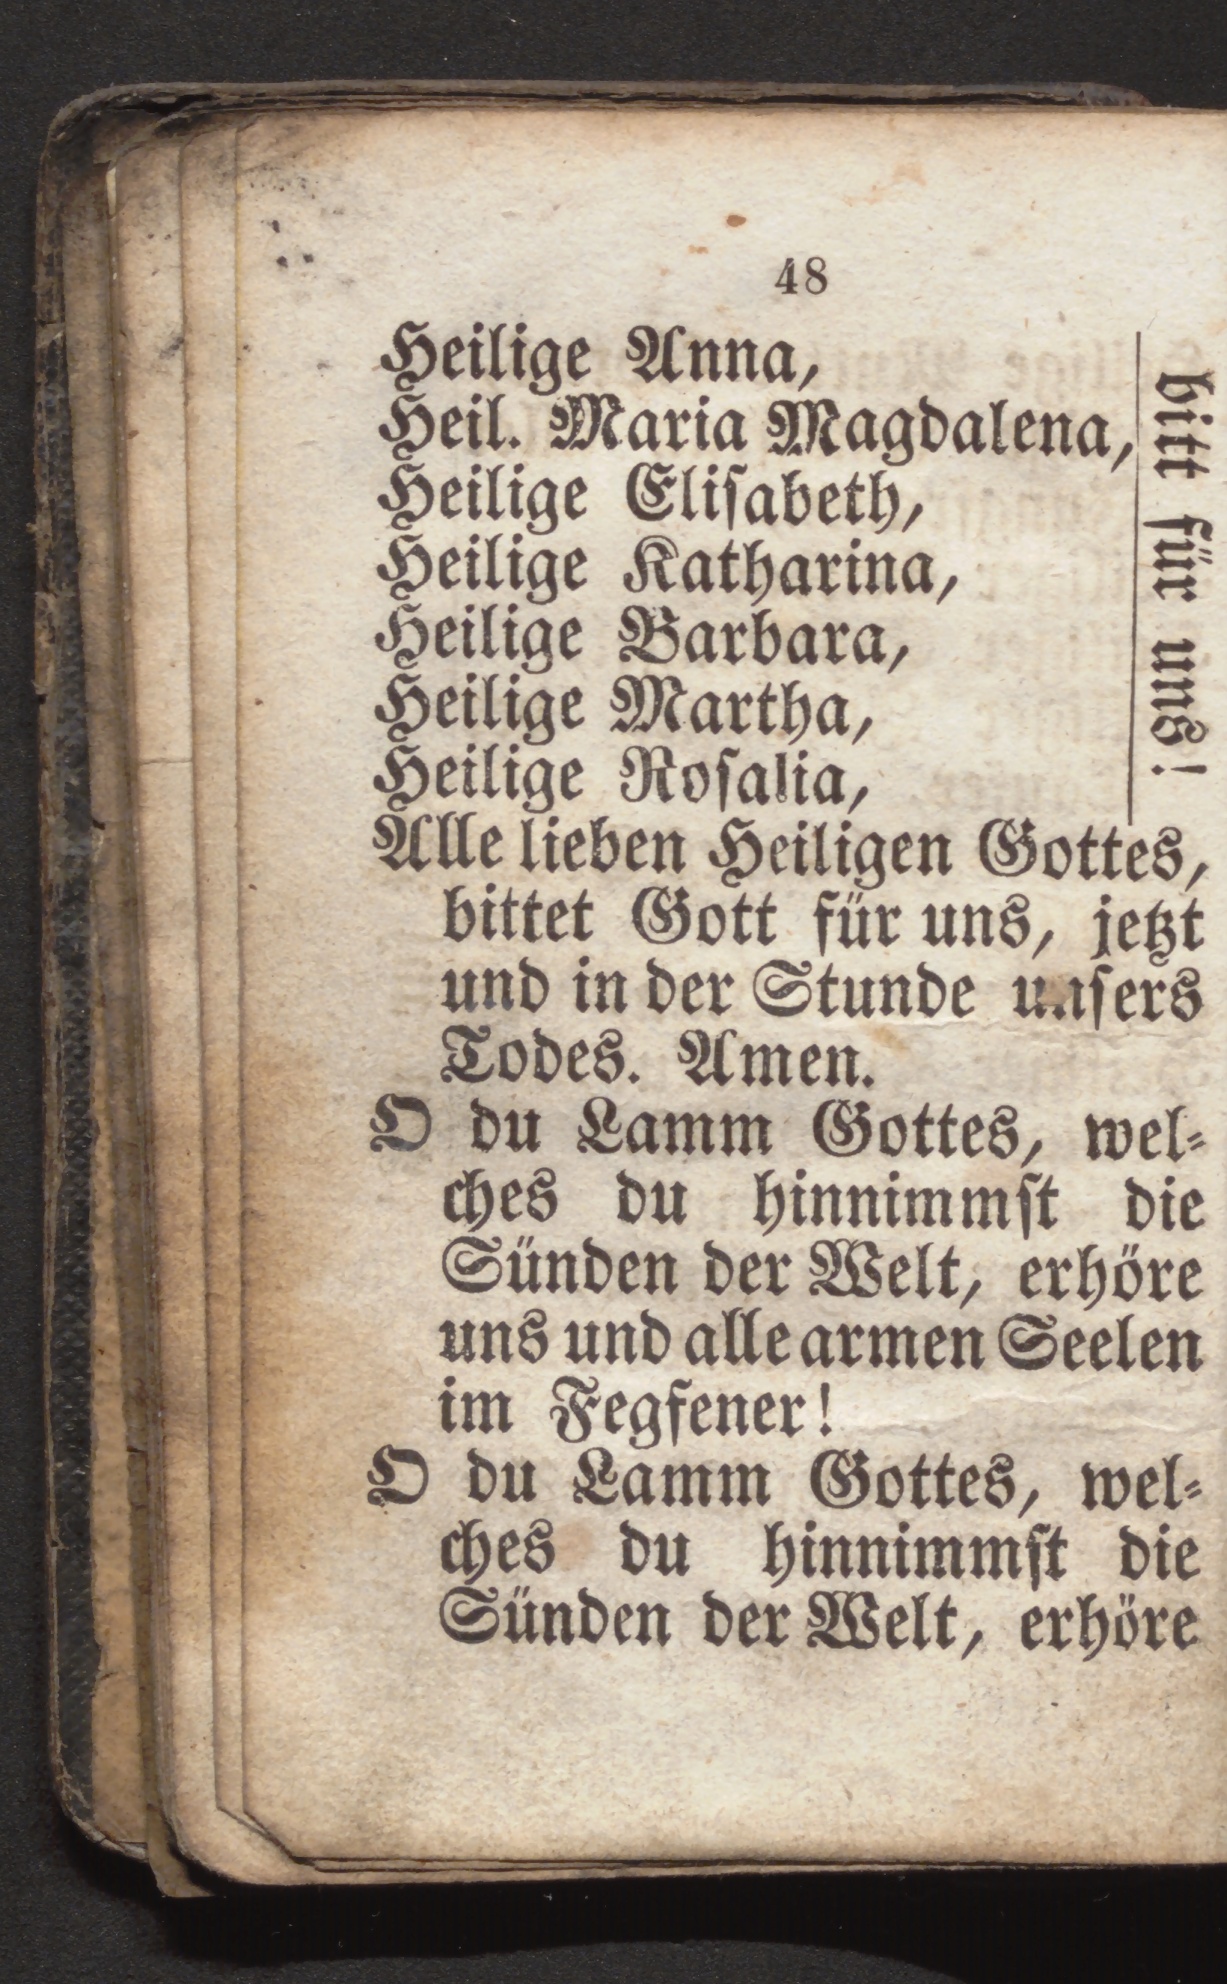 48
Heilige Anna,
Heil. Maria Magdalena,
Heilige Eliſabeth,
Heilige Katharina,
Heilige Barbara,
Heilige Martha,
Heilige Roſalia,
bitt für uns!
Alle lieben Heiligen Gottes,
bittet Gott für uns, jetzt
und in der Stunde unſers
Todes. Amen.
O du Lamm Gottes, wel⸗
ches du hinnimmſt die
Sünden der Welt, erhöre
uns und alle armen Seelen
im Fegfener!
O du Lamm Gottes, wel⸗
ches du hinnimmſt die
Sünden der Welt, erhöre